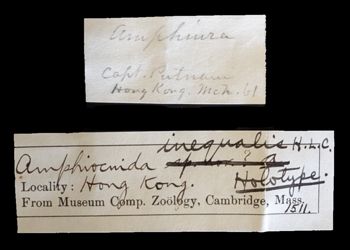 Amphiura
Capt. Putnam
Hong Kong. Mch. 61
inequalis H.L.C.
Amphiocnida sp. nov. ?
Holotype.
Locality: Hong Kong.
From Museum Comp. Zoölogy, Cambridge, Mass.
1511.